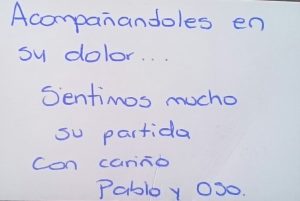 Acompañandoles en
su dolor...
Sentimos mucho
su partida
con cariño
Pablo y Oso.